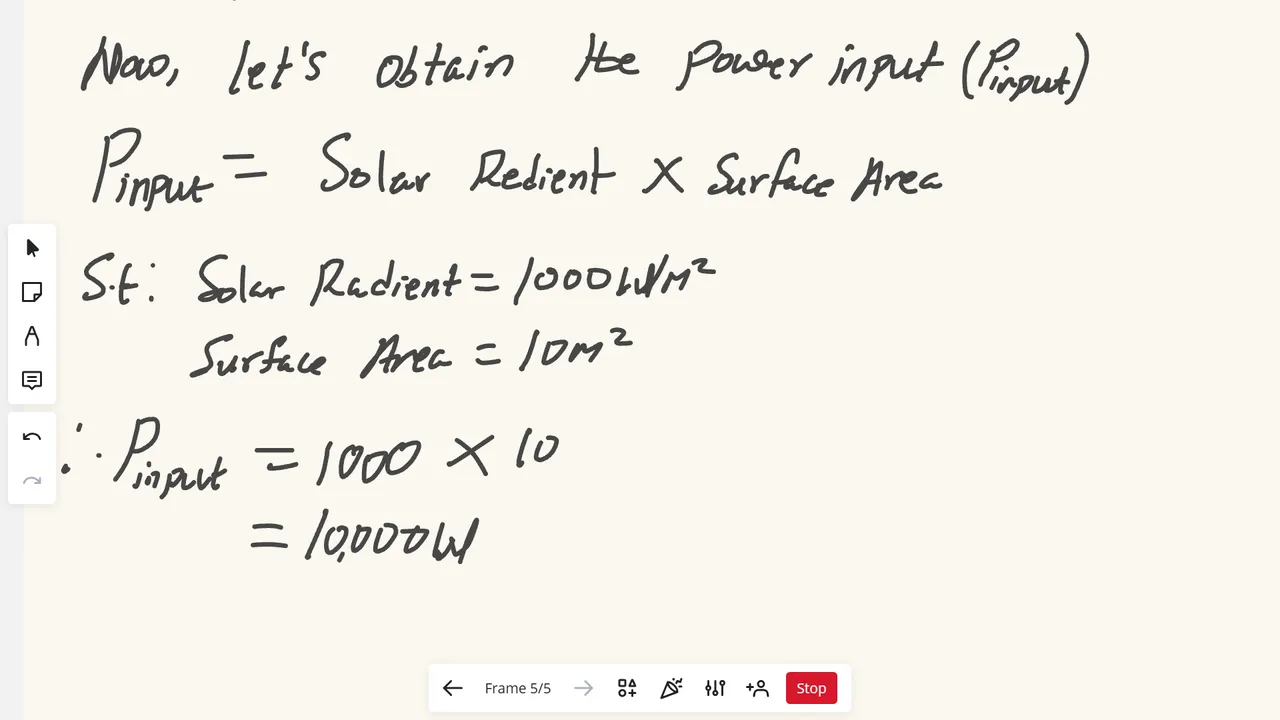 Now, let's obtain the power input (Pinput)
Pinput = Solar Redient × Surface Area
S.t: Solar Radient = 1000W/m²
Surface Area = 10m²
∴ Pinput = 1000 × 10
= 10,000W
Frame 5/5
Stop